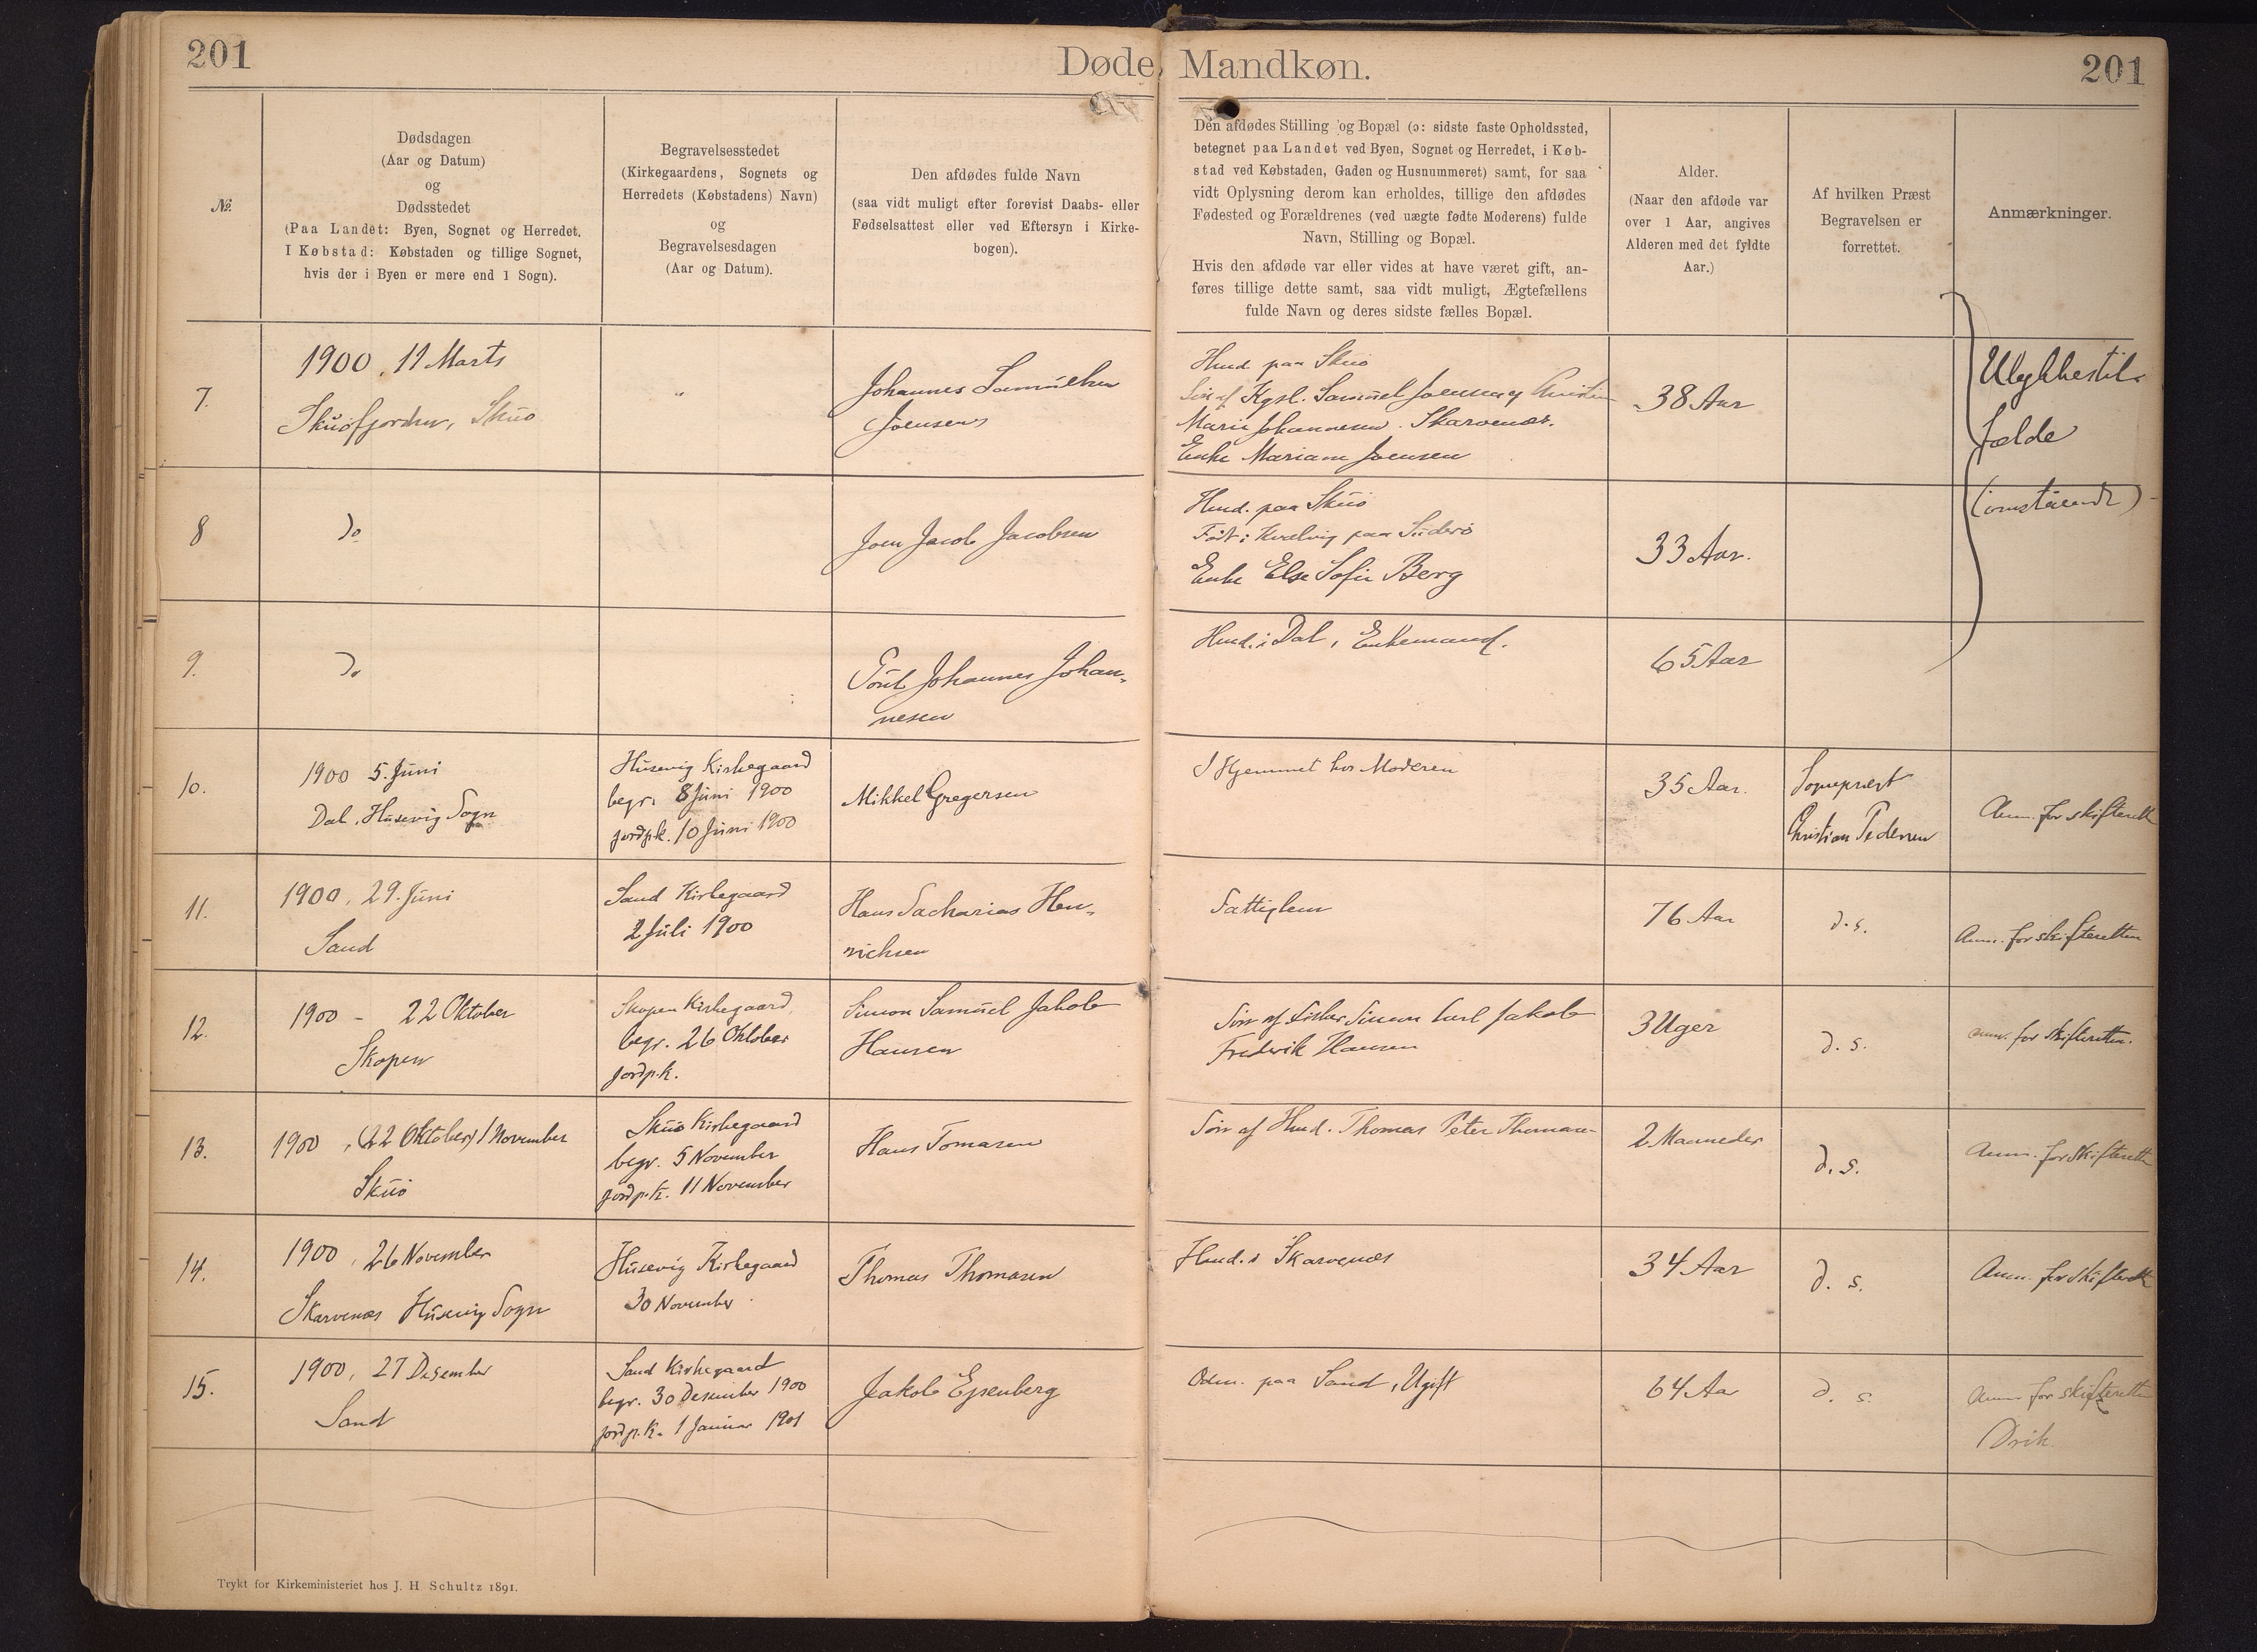 201
Døde, Mandkøn.
201
№.
Dødsdagen
(Aar og Datum)
og
Dødsstedet
(Paa Landet: Byen, Sognet og Herredet.
I Købstad: Købstaden og tillige Sognet,
hvis der i Byen er mere end 1 Sogn).
Begravelsesstedet
(Kirkegaardens, Sognets og
Herredets (Købstadens) Navn)
og
Begravelsesdagen
(Aar og Datum).
Den afdødes fulde Navn
(saa vidt muligt efter forevist Daabs- eller
Fødselsattest eller ved Eftersyn i Kirke-
bogen).
Den afdødes Stilling og Bopæl (ɔ: sidste faste Opholdssted,
betegnet paa Landet ved Byen, Sognet og Herredet, i Køb-
stad ved Købstaden, Gaden og Husnummeret) samt, for saa
vidt Oplysning derom kan erholdes, tillige den afdødes
Fødested og Forældrenes (ved uægte fødte Moderens) fulde
Navn, Stilling og Bopæl.
Hvis den afdøde var eller vides at have været gift, an-
føres tillige dette samt, saa vidt muligt, Ægtefællens
fulde Navn og deres sidste fælles Bopæl.
Alder.
(Naar den afdøde var
over 1 Aar, angives
Alderen med det fyldte
Aar.)
Af hvilken Præst
Begravelsen er
forrettet.
Anmærkninger.
7.
1900, 11 Marts
Skuofjorden, Skuo
"
Johannes Samuelsen
Joensen
Hmd paa Skuo
Søn af Kgsl. Samuel Joensen og
Marie Johannesen. Skarvenæs.
Enke Mariane Joensen
38 Aar
Ulykkestil-
fælde
(omstaaende)
8
do
Joen Jacob Jacobsen
Hmd. paa Skuo
Født i Kvalvig paa Suderø
Enke Else Sofie Berg
33 Aar.
9.
do
Poul Johannes Johan-
nesen
Hmd. i Dal, Enkemand.
65 Aar
10.
1900 5. Juni
Dal, Husevig Sogn
Husevig Kirkegaard
begr. 8 Juni 1900
jordp.k. 10 Juni 1900
Mikkel Gregersen
I Hjemmet hos Moderen
35 Aar.
Sognepræst
Christian Pedersen
Anm. for skifterett
11.
1900, 29. Juni
Sand
Sand Kirkegaard
2 Juli 1900
Hans Sacharias Hen-
richsen
Fattiglem
76 Aar
d. s.
Anm. for skifteretten
12.
1900 - 22 Oktober
Skopen
Skopen Kirkegaard,
begr. 26 Oktober
jordp.k.
Simon Samuel Jakob
Hansen
Søn af Fisker Simon Carl Jakob
Frederik Hansen
3 Uger
d. s.
anm. for skifteretten.
13.
1900, (22 Oktober) 1 November
Skuo
Skuo Kirkegaard
begr. 5 November
jordp.k. 11 November
Hans Tomasen
Søn af Hmd. Thomas Peter Thomasen
2 Maaneder
d. s.
Anm. for skifterette
14.
1900, 26 November
Skarvenæs Husevig Sogn
Husevig Kirkegaard
30 November
Thomas Thomasen
Hmd. i Skarvenæs
34 Aar
d. s.
Anm. for skifterett
15.
1900, 27 Desember
Sand
Sand Kirkegaard
begr. 30 Desember 1900
jordp.k. 1 Januar 1901
Jakob Ejsenberg
Odm. paa Sand, Ugift
64 Aar
d. s.
Anm. for skifteretten
Drik.
Trykt for Kirkeministeriet hos J. H. Schultz 1891.